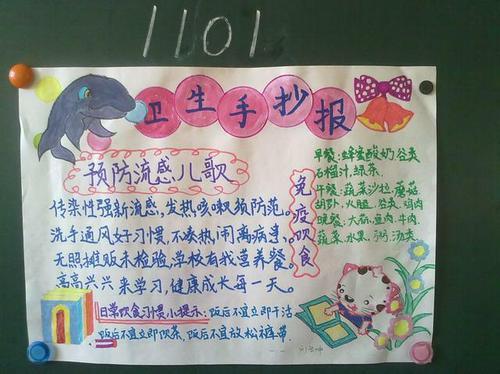 1101
卫生手抄报
预防流感儿歌
传染性强新流感,发热咳嗽须防范。
洗手通风好习惯,不凑热闹离病毒。
无照摊贩未检验,学校有我营养餐。
高高兴兴来学习,健康成长每一天。
免疫饮食
早餐:蜂蜜酸奶谷类
石榴汁,绿茶.
午餐:蔬菜沙拉,蘑菇
胡萝卜,火腿,谷类,鸡肉
晚餐:大蒜,鱼肉,牛肉,
蔬菜,水果,粥,汤类.
日常饮食习惯小提示:饭后不宜立即干活
饭后不宜立即饮茶,饭后不宜放松裤带.